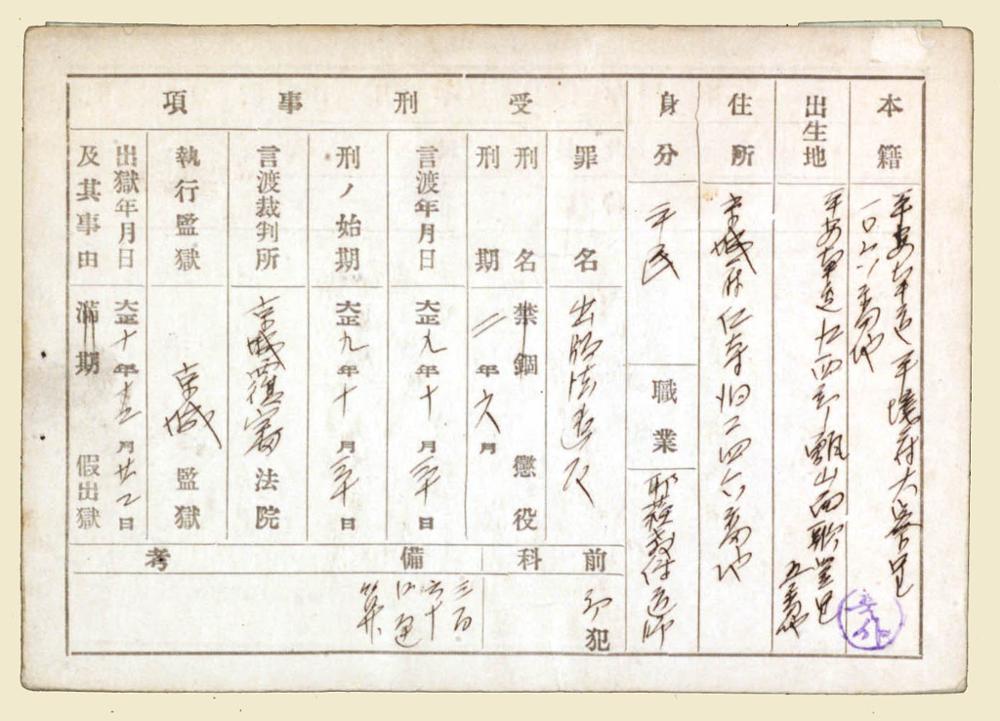 本籍
平安南道平壤府大察里
一〇六八番地
出生地
平安南道江西郡甑山面聚豊里
五番地
住所
京城府仁寺洞二四六番地
身分
平民
職業
耶蘇教伝道師
受刑事項
罪名
出版法違反
刑名
禁錮 懲役
刑期
二年六月
言渡年月日
大正九年十月三十日
刑ノ始期
大正九年十月三十日
言渡裁判所
京城覆審法院
執行監獄
京城監獄
出獄年月日
及其事由
大正十年十一月廿二日
滿期 假出獄
前科
初犯
備考
三百
六十
日通
算